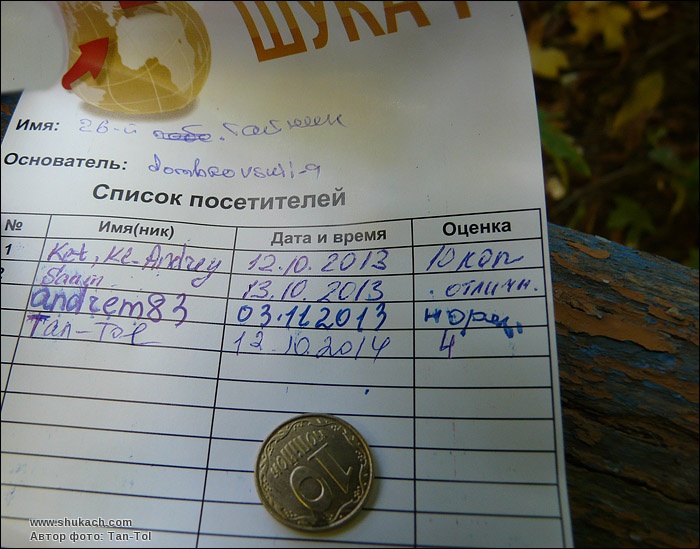 ШУКАЧ
Имя: 26-й тайник
Основатель: dombrovskii-9
Список посетителей
№ Имя(ник) Дата и время Оценка
1 Kot, Kl-Andrey 12.10.2013 10 коп
2 Saam 13.10.2013 отличн.
andrem83 03.11.2013 норм.
Tan-Tol 12.10.2014 4
10
КОПІЙОК
www.shukach.com
Автор фото: Tan-Tol